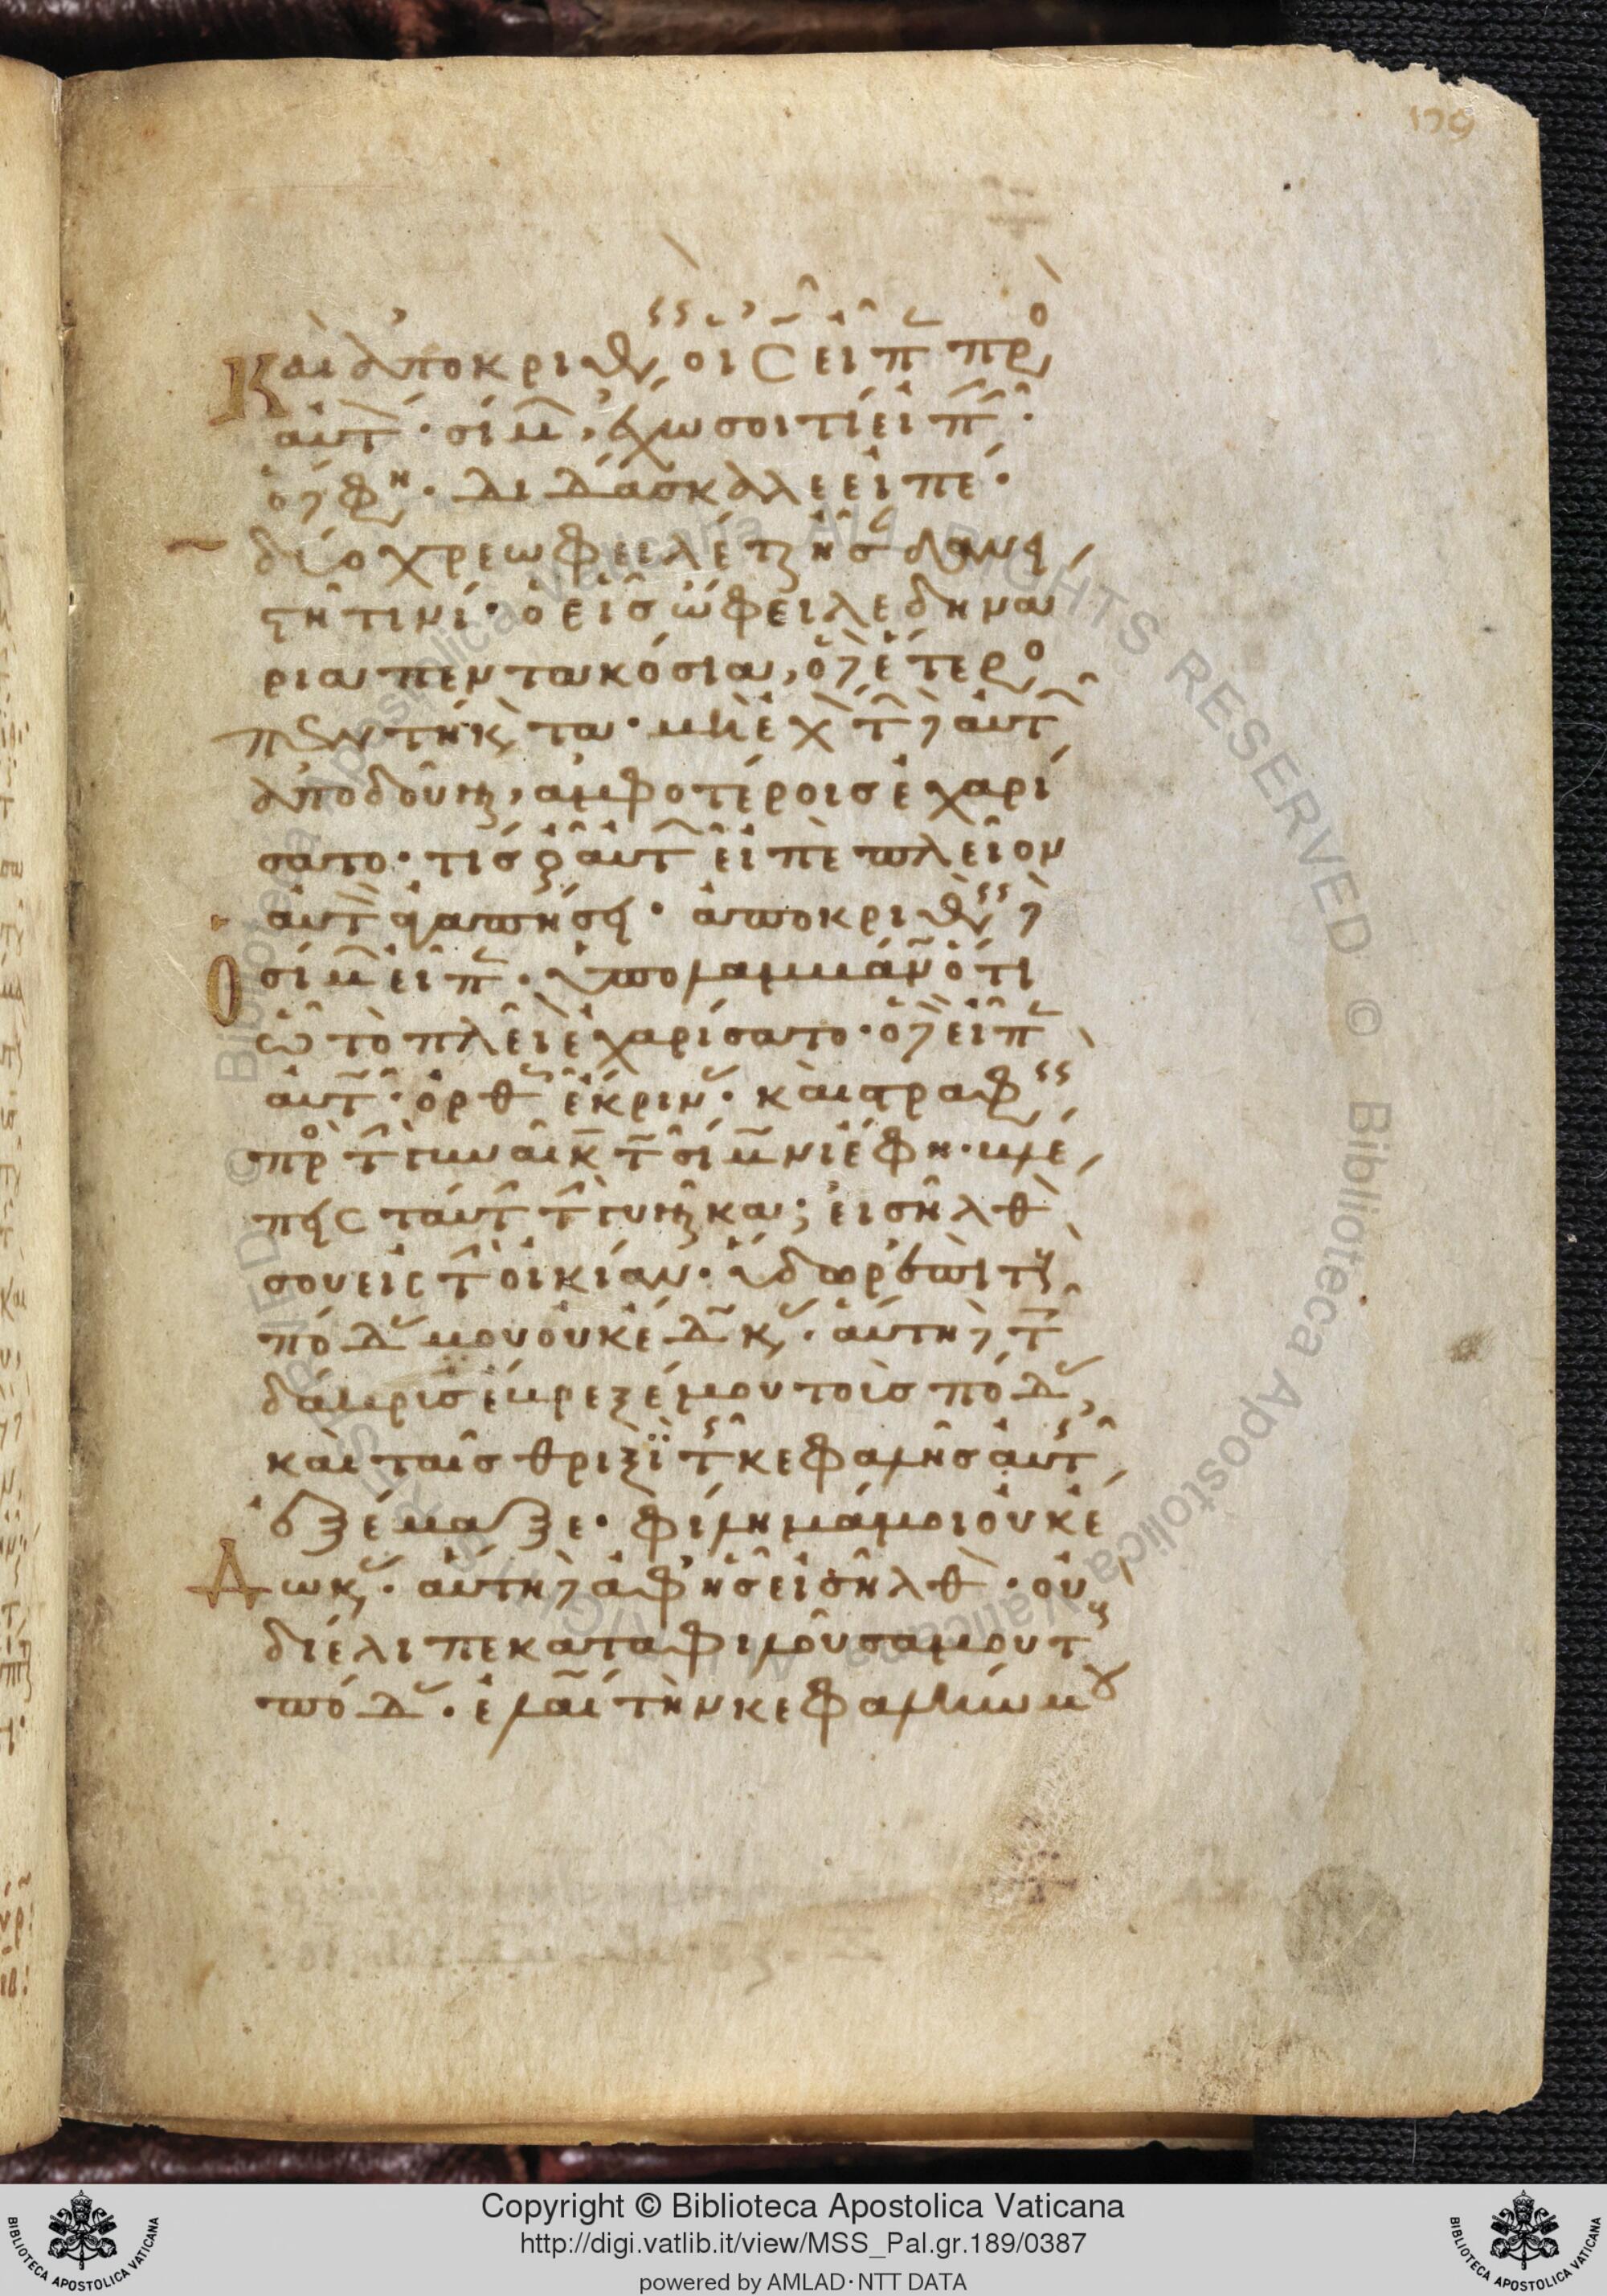 179
Καὶ ἀποκριθεὶς ὁ ις εἶπε πρὸς
αὐτὸν· σίμων, ἔχω σοι τί εἰπεῖν·
ὁ δὲ φη· διδάσκαλε εἰπέ·
δύο χρεωφειλέται ἦσαν δανει
στῆ τινί· ὁ εἷς ὤφειλε δηνά
ρια πεντακόσια, ὁ δὲ ἕτερος
πεντήκοντα· μὴ ἐχόντων δὲ αὐτῶν
ἀποδοῦναι, ἀμφοτέροις ἐχαρί
σατο· τίς οὖν αὐτῶν εἰπὲ πλεῖον
αὐτὸν ἀγαπήσει· ἀποκριθεὶς δὲ
ὁ σίμων εἶπεν· ὑπολαμβάνω ὅτι
ὧ τὸ πλεῖον ἐχαρίσατο· ὁ δὲ εἶπεν
αὐτῶ· ὀρθῶς ἔκρινας· καὶ στραφεὶς
πρὸς τὴν γυναῖκα τῶ σίμωνι ἔφη· βλέ
πεις ταύτην τὴν γυναῖκα; εἰσῆλθόν
σου εἰς τὴν οἰκίαν· ὕδωρ ἐπὶ τοὺς
πόδας μου οὐκ ἔδωκας· αὕτη δὲ τοῖς
δάκρυσιν ἔβρεξέ μου τοὺς πόδας,
καὶ ταῖς θριξὶ τῆς κεφαλῆς αὐτῆς
ἐξέμαξε· φίλημά μοι οὐκ ἔ
δωκας· αὕτη δὲ ἀφ' ἧς εἰσῆλθον· οὐ
διέλιπε καταφιλοῦσα μου τοὺς
πόδας· ἐλαίω τὴν κεφαλήν μου
Copyright © Biblioteca Apostolica Vaticana
http://digi.vatlib.it/view/MSS_Pal.gr.189/0387
powered by AMLAD·NTT DATA